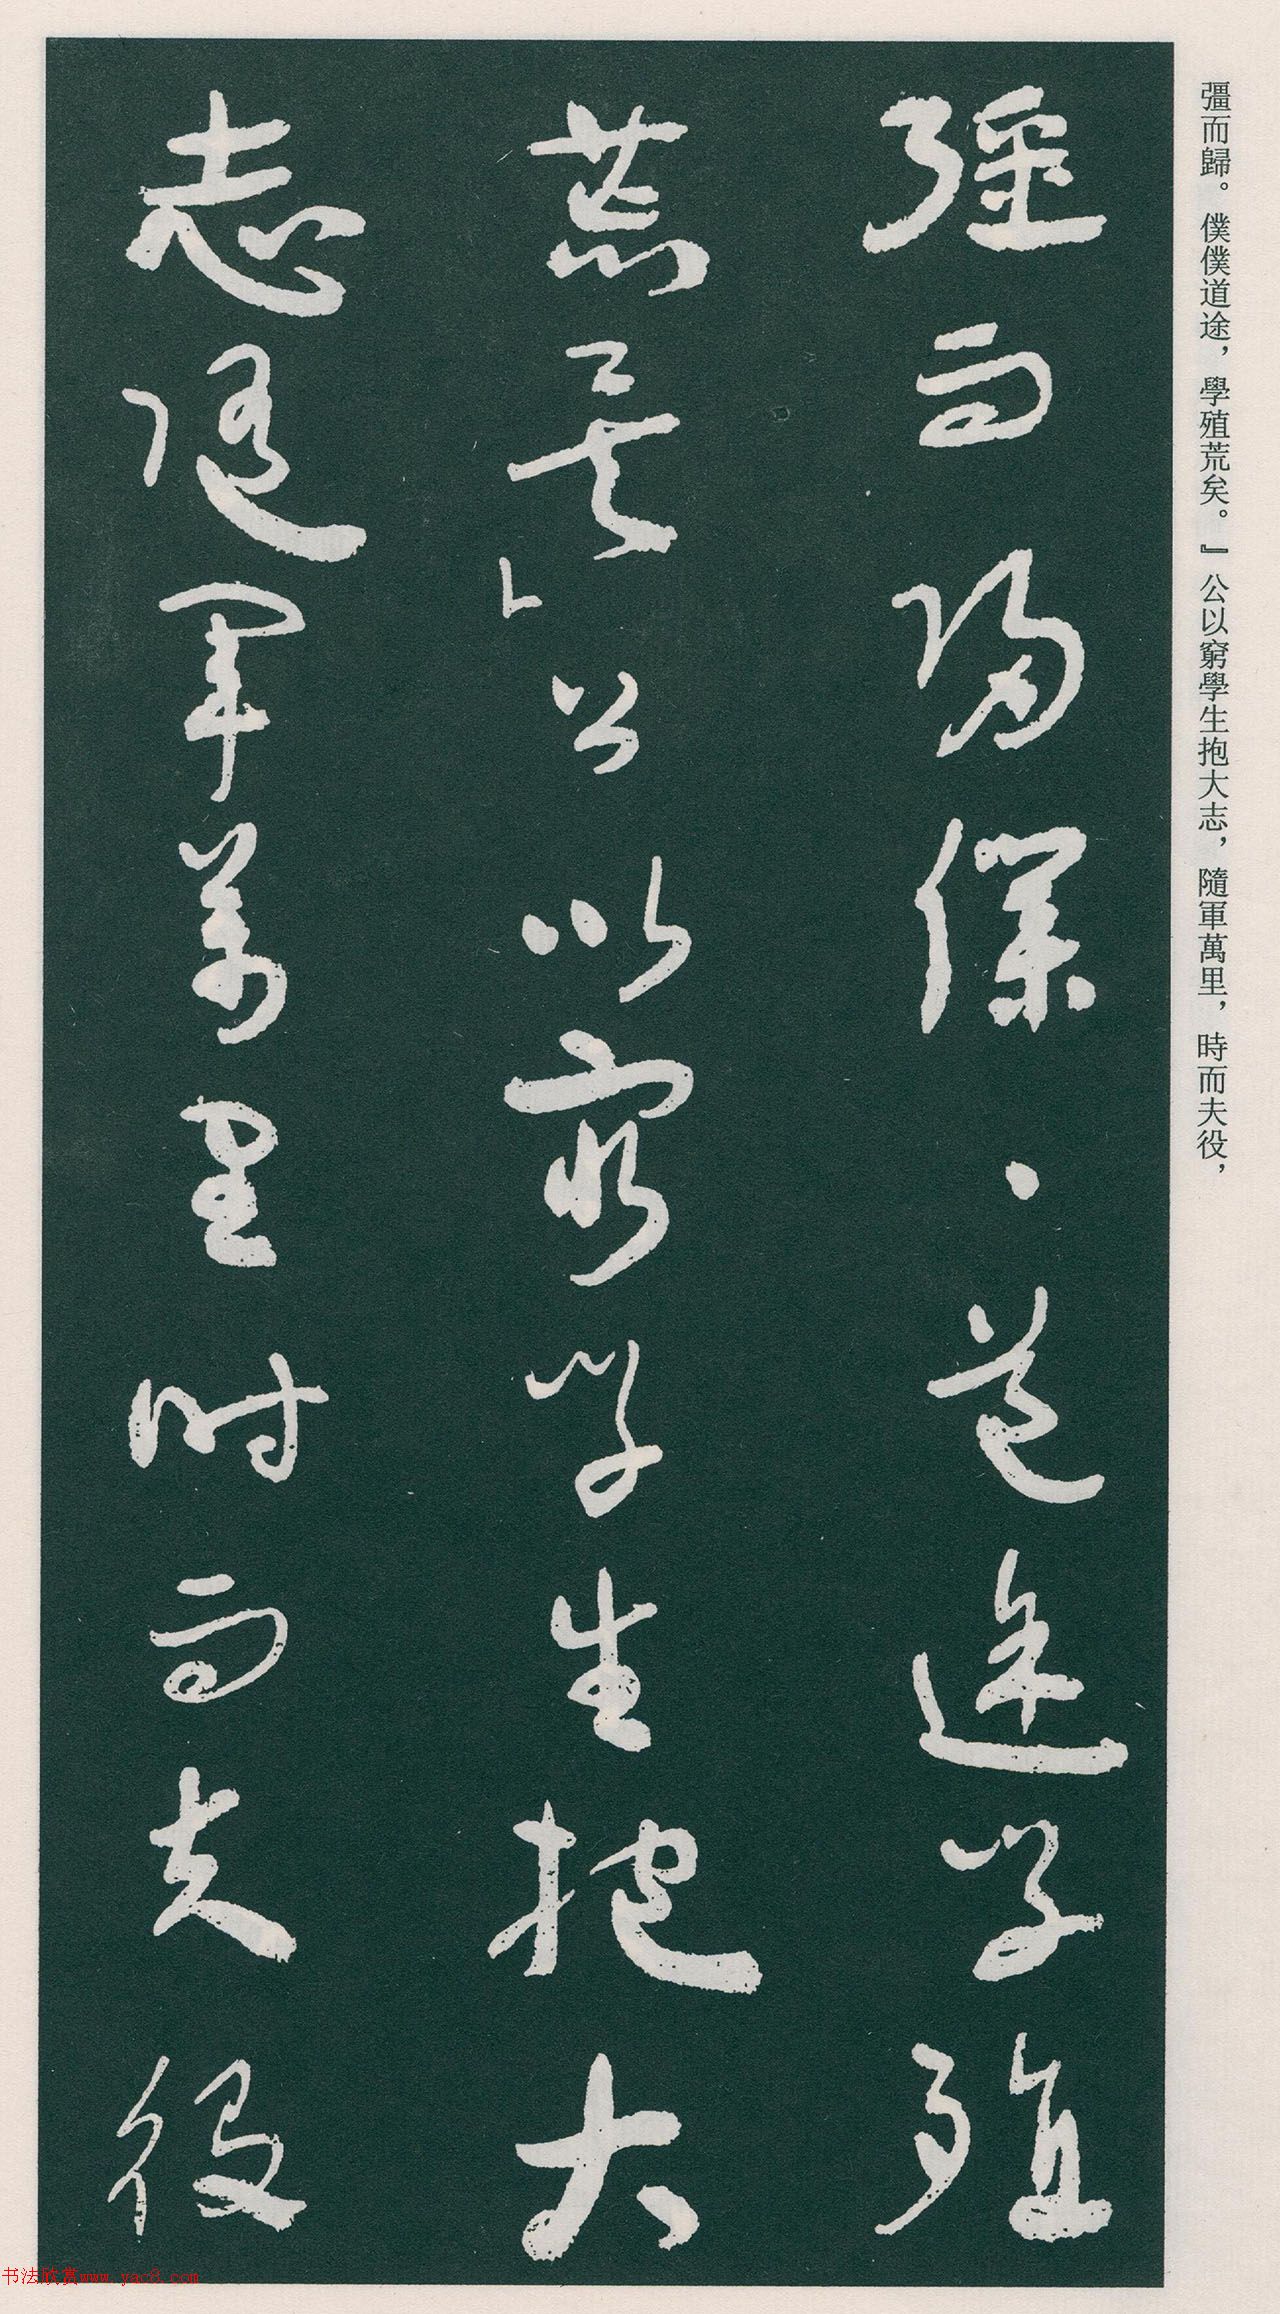 彊而歸。僕僕道途，學殖荒矣。』公以窮學生抱大志，隨軍萬里，時而夫役，
彊而歸僕、道途學殖
荒矣」公以窮學生抱大
志隨軍萬里時而夫役
书法欣赏www.yac8.com